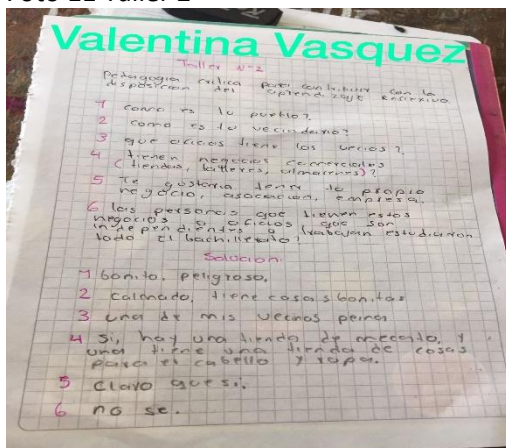 Foto 11 Taller 2
Valentina Vasquez
Taller N-2
Pedagogia critica para contribuir con la
disposicion del aprendizaje
1 como es tu pueblo?
2 como es tu vecindario?
3 que oficios tiene los vecios?
4 tienen negocios comerciales
(tiendas, talleres, almacenes)?
5 Te gostaria tener tu propio
negocio, asociacion, empresa.
6 las personas que tienen estos
negocios o oficios que son
independientes o trabajan estudiaron
todo el bachillerato?
Solucion
1 bonito, peligroso,
2 calmado, tiene casas bonitas
3 una de mis vecinas peina
4 si, hay una tienda de mecato, y
una tiene una tienda de cosas
para el cabello y ropa.
5 claro que si.
6 no se.